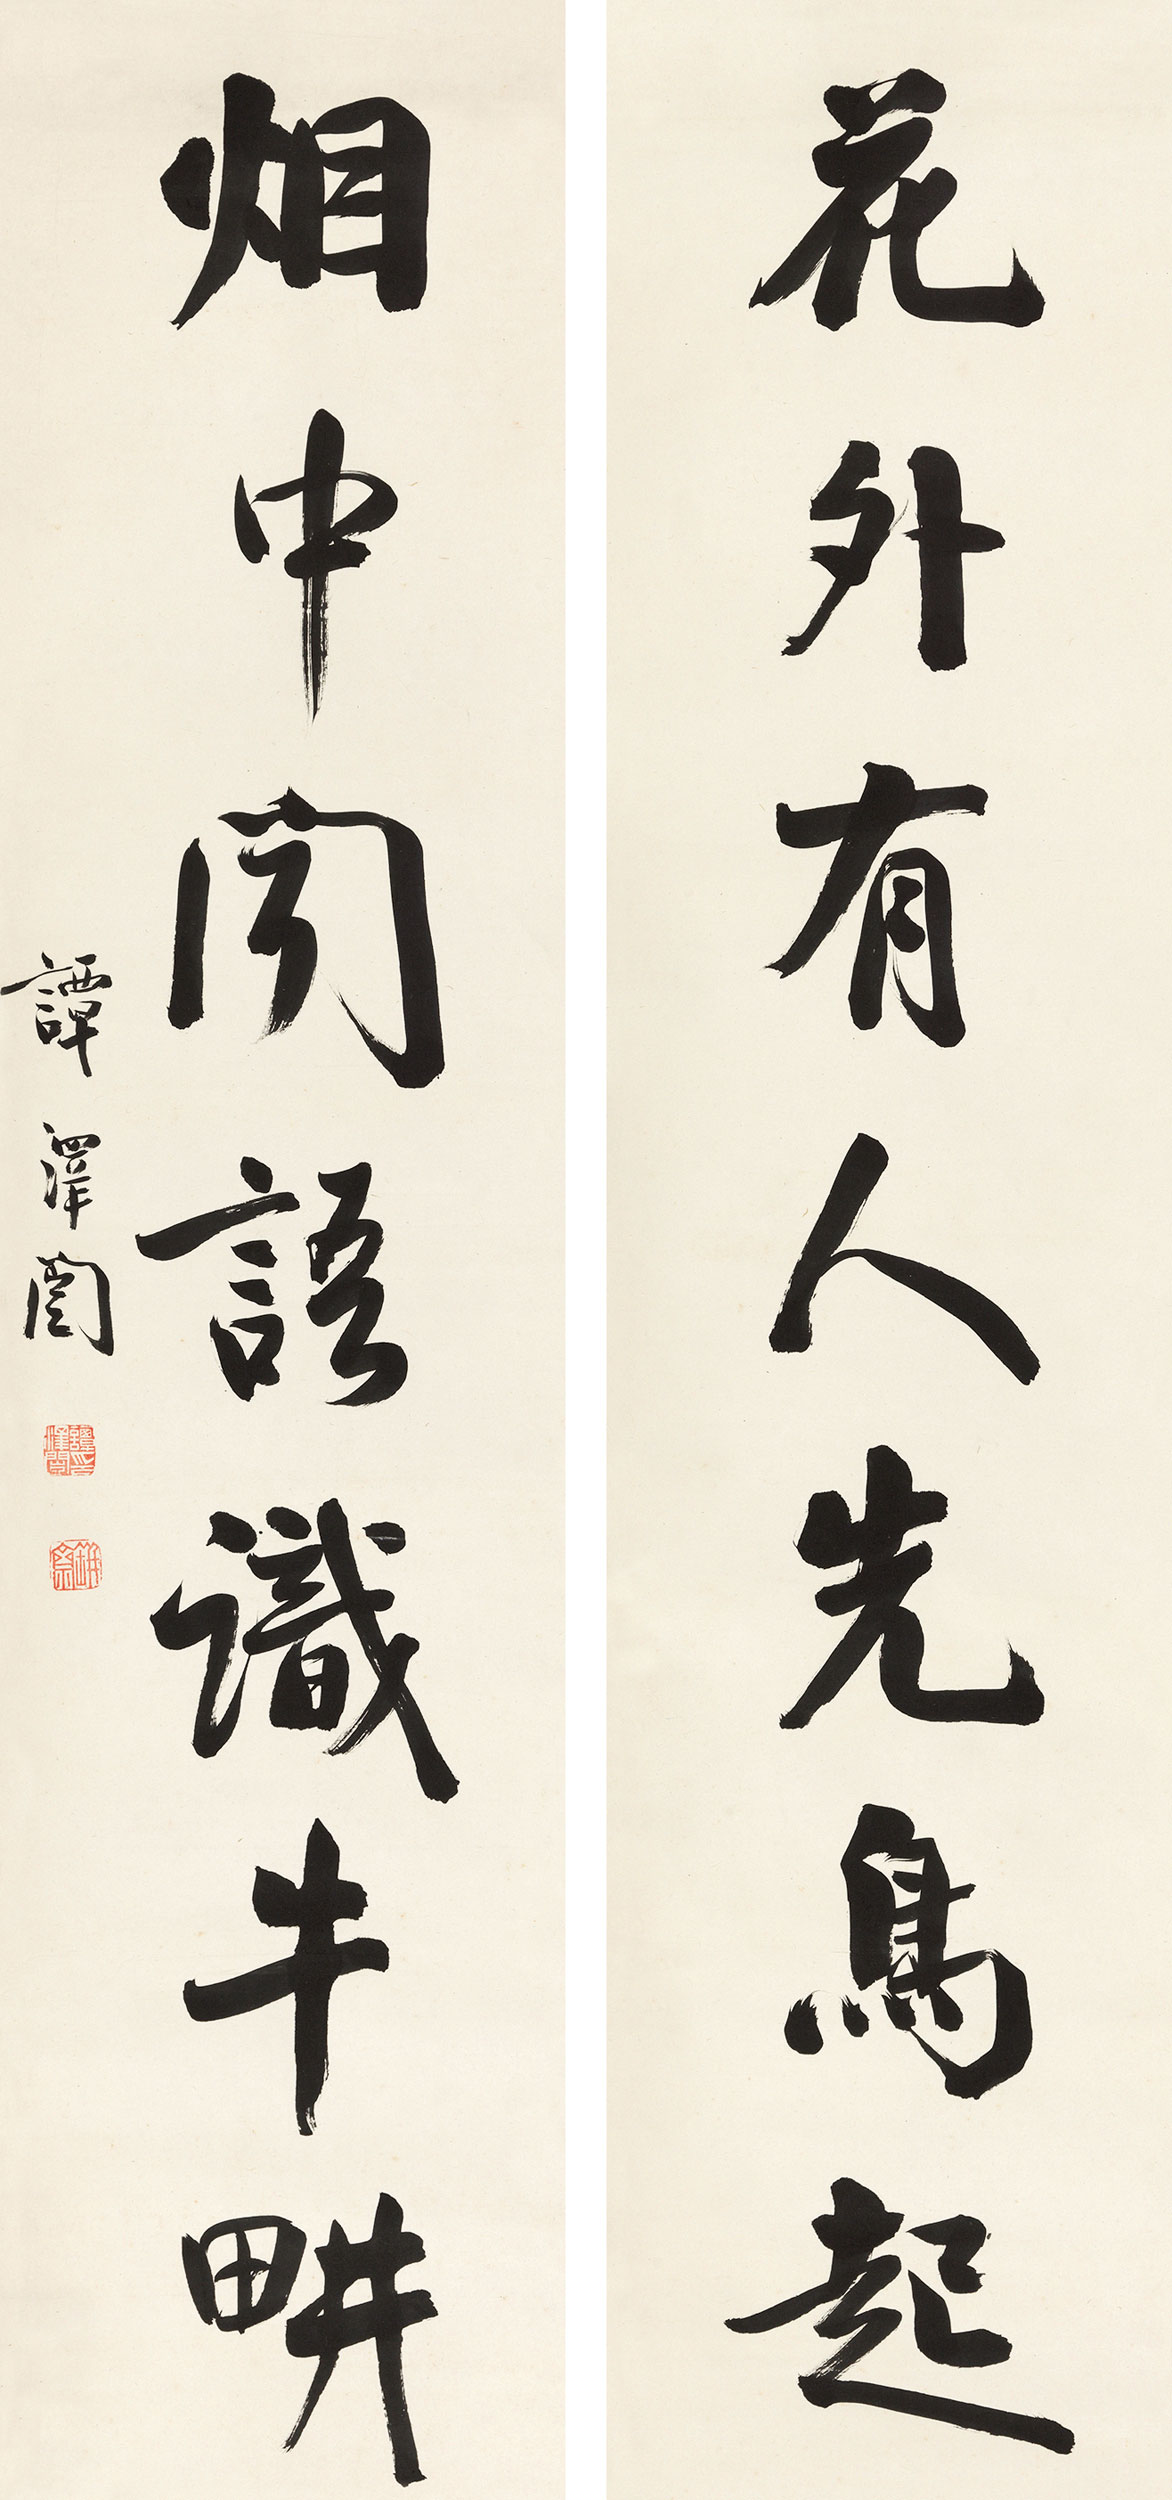 花外有人先鳥起
烟中聞語識牛畊
譚澤闓